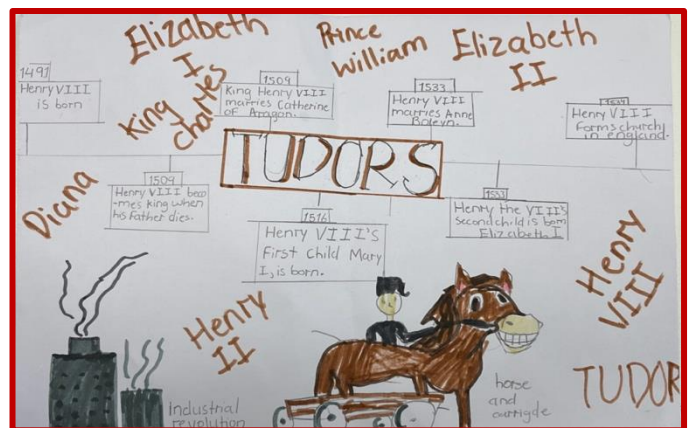 Elizabeth
I
Prince
William
Elizabeth
II
1491
Henry VIII
is born
King
Charles
1509
King Henry VIII
marries Catherine
of Aragon.
1533
Henry VIII
marries Anne
Boleyn.
Henry VIII
Forms church
in england.
TUDORS
Diana
1509
Henry VIII beco
-mes king when
his Father dies.
1516
Henry VIII's
First Child Mary
I, is born.
1533
Henry the VIII's
second child is born
Elizabeth I
Henry
VIII
Henry
II
Industrial
revolution
horse
and
carrigde
TUDOR